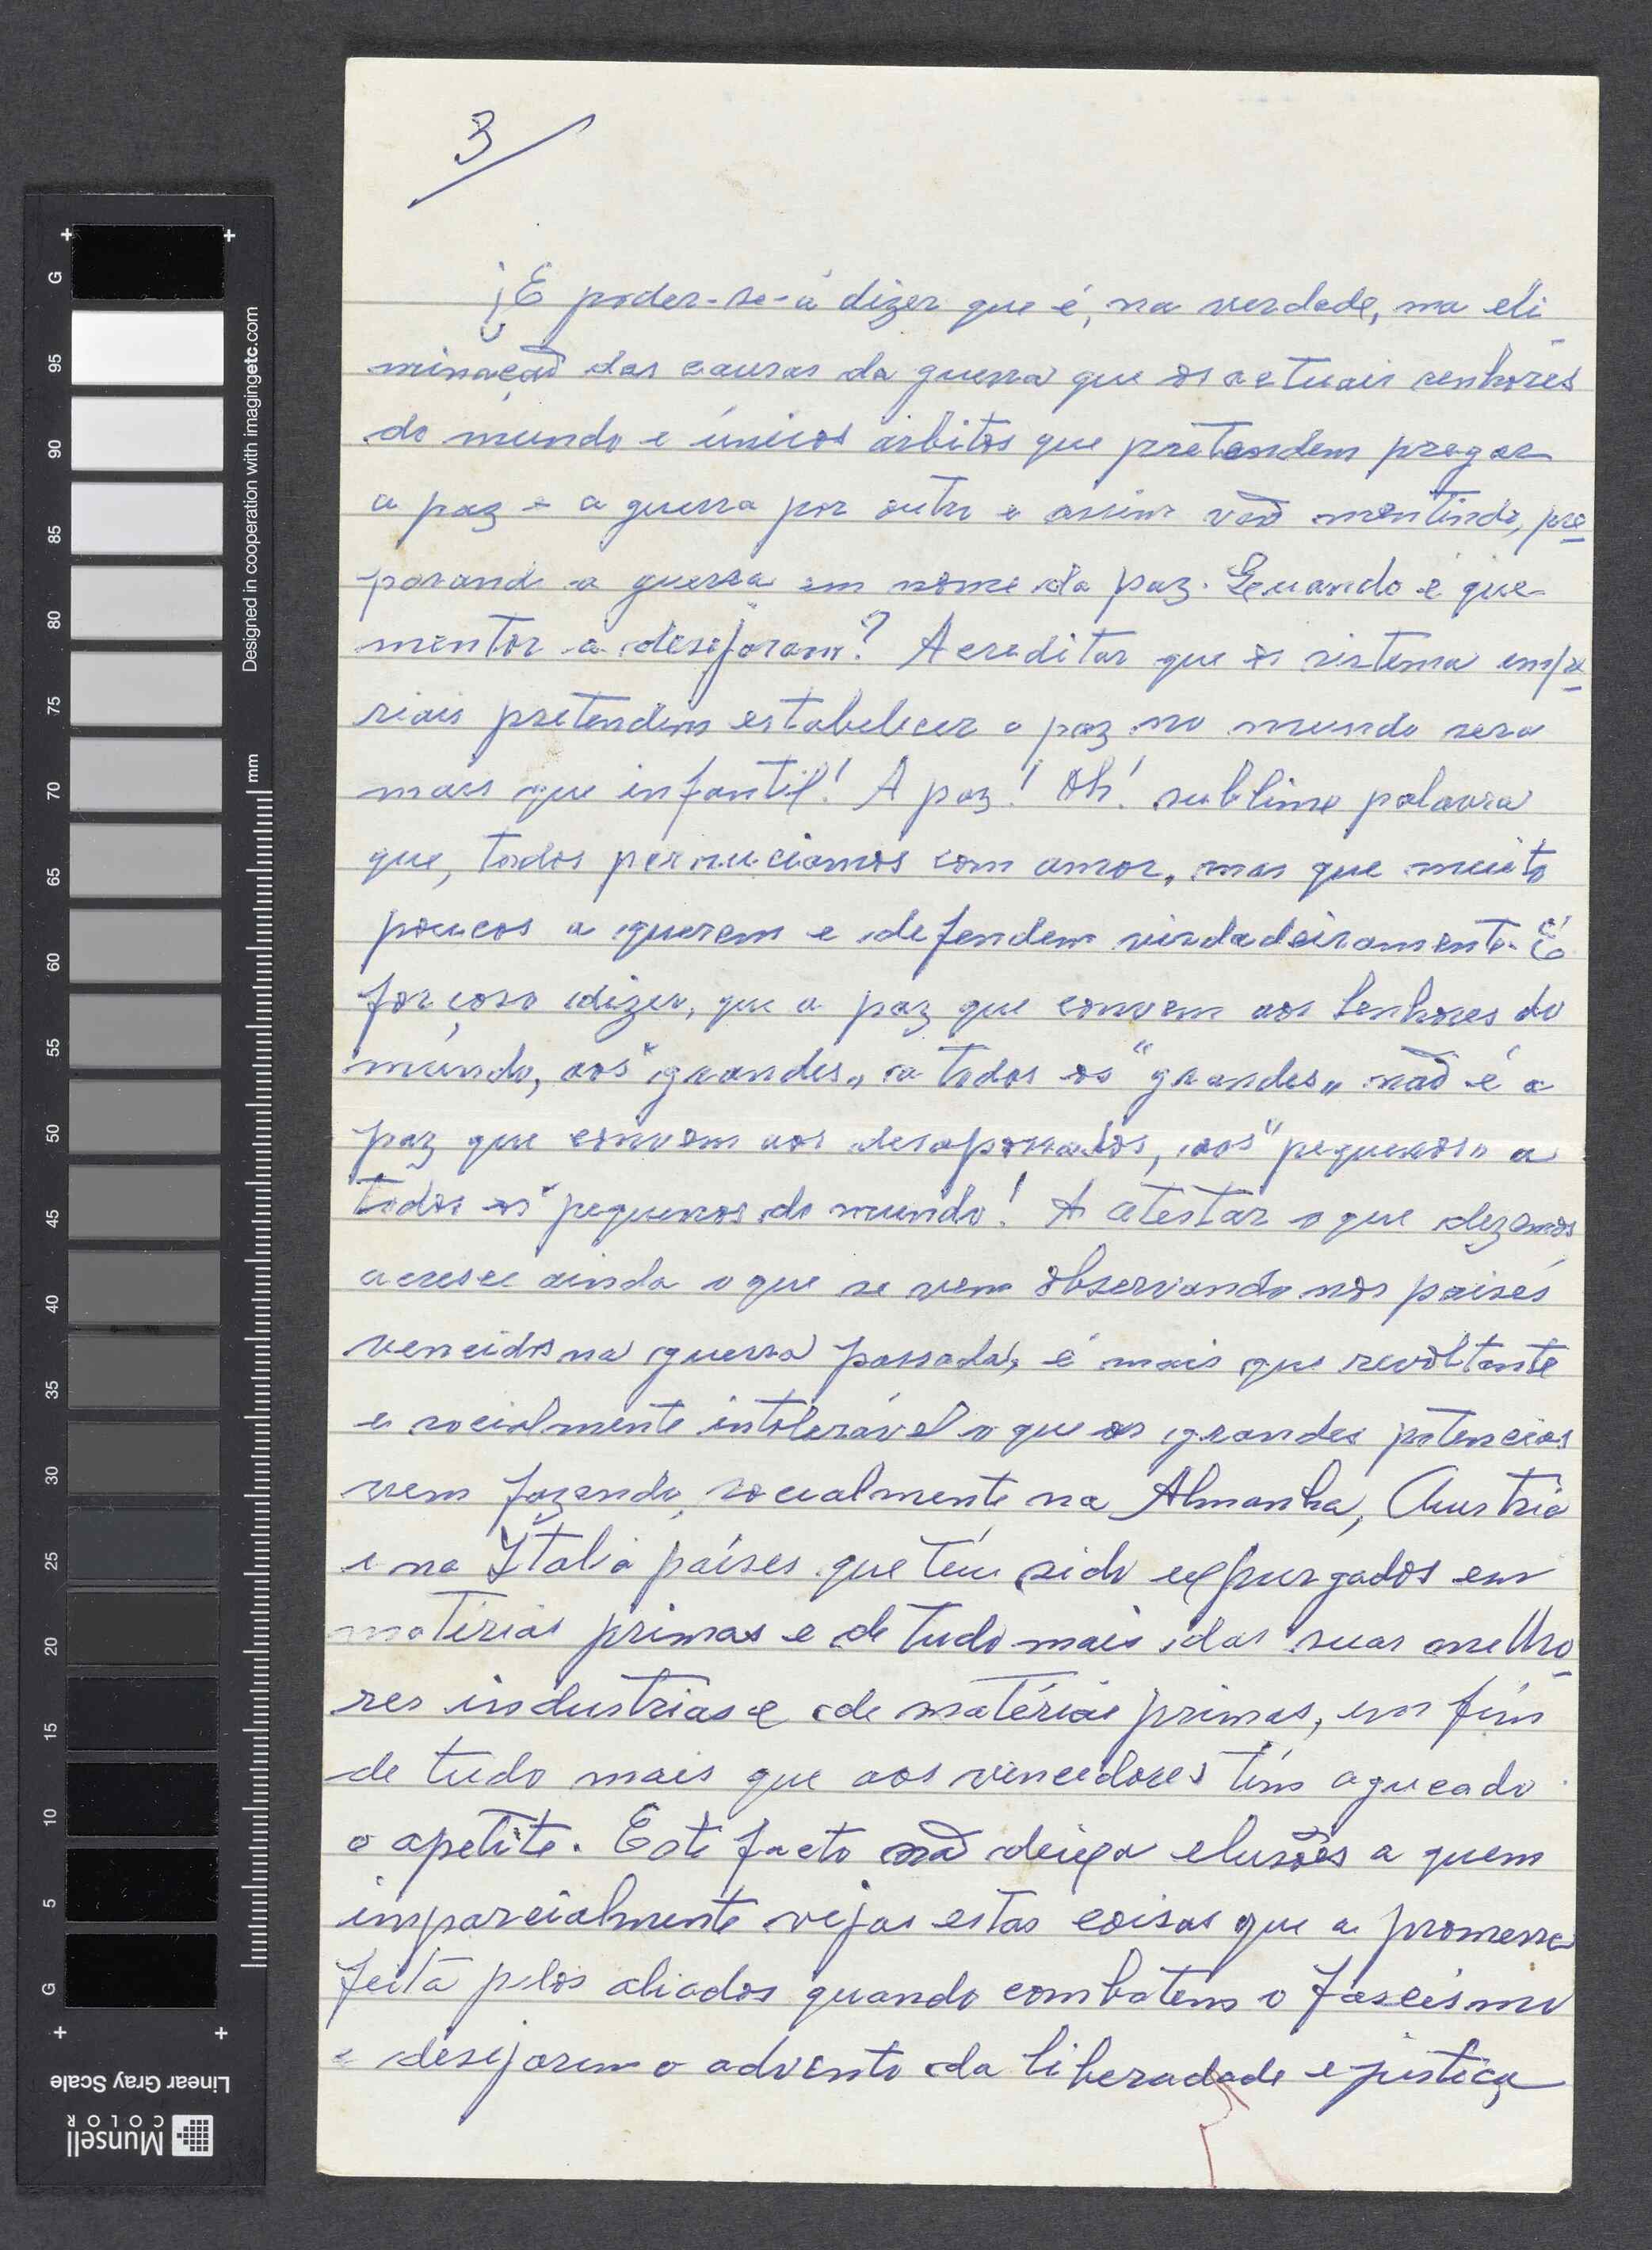 3
¿E poder-se-á dizer que é, na verdade, na eli
minação das causas da guerra que os actuais senhores
do mundo e únicos árbitos que pretendem pregar
a paz e a guerra por outro e assim vão mentindo, pre
parand a guerra em nome da paz. Quando é que
mentor a desejaram? Acreditar que os sistema empe
riais pretendem estabelecer a paz no mundo sera
mais que infantil! A paz! Ah! sublime palavra
que, todos pernuciamos com amor, mas que muito
poucos a querem e defendem verdadeiramente. É
forçoso dizer, que a paz que convem aos Senhores do
mundo, aos "grandes" a todos os "grandes" não é a
paz que convem aos desaporados, aos "pequenos" a
todos os "pequenos do mundo! A atestar o que dezemos
acresce ainda o que se vem observando nos países
vencidos na guerra passada, é mais que revoltante
e socialmente intolerável o que as grandes potencias
vem fazendo, socialmente na Almanha, Austria
e na Itália países que têm sido expurgados em
matérias primas e de tudo mais das suas melho
res industrias e de matérias primas, em fim
de tudo mais que aos vencedores têm aguçado
o apetite. Este facto não deixa elusões a quem
imparcialmente vejas estas coisas que a promessa
feita pelos aliados quando combatem o fascismo
e desejarem o advento da liberadade e justiça
Designed in cooperation with imagingetc.com
mm
G 95 90 85 80 75 70 65 60 55 50 45 40 35 30 25 20 15 10 5 G
Linear Gray Scale
Munsell
COLOR